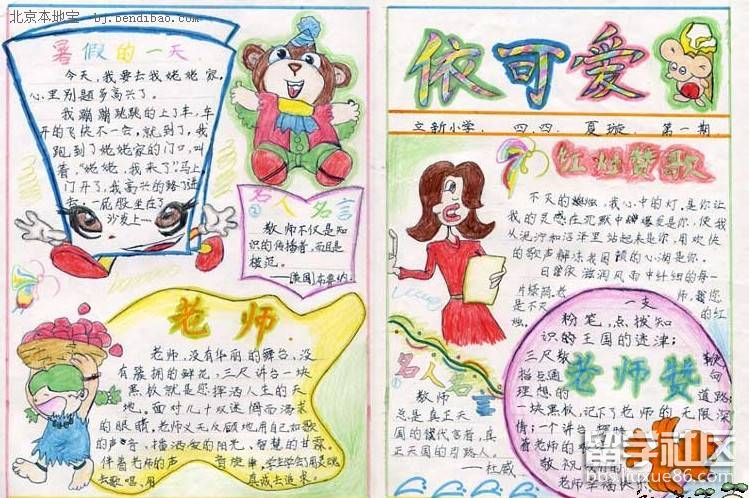 北京本地宝 - bj.bendibao.com
暑假的一天
今天，我要去我姥姥家，
心里别题多高兴了。
我蹦蹦跳跳的上了车，车
开的飞快不一会，就到了，我
跑到了姥姥家的门口，叫
着，"姥姥，我来了"。马上
门开了，我高兴的
去，一屁股坐在了
沙发上……
名人名言
②
教师不仅是知
识的传播者，而且是
模范。
老师
老师，没有华丽的舞台，没
有簇拥的鲜花，三尺讲台一块
黑板就是您挥洒人生的天
地。面对几十双迷惘而渴求
的眼睛，老师义无反顾地用自己如歌
的声音，播洒爱的阳光、智慧的甘霖。
伴着老师的声
去歌唱，用真诚去追求。
依可爱
立新小学 四.四. 夏璇 第一期
红烛赞歌
不灭的蜡烛，我心中的灯，是你让
我的灵感在沉默中爆发是你，使我
从泥泞和沼泽里站起来是你，用欢快
的歌声解冻我困顿的心涧是你。
日曾依滋润风雨中纤细的每一
片绿荫，老师，您
是不灭的红
烛。
老师赞
一支
粉笔，点拨知
识的王国的迷津；
三尺教鞭
指点通向
理想的道路；
一块黑板，记下了老师的无限深
情；一个讲台，
着老师的
敬祝我们的
老师幸福快乐
名人名言
①
教师
总是真正天
国的代言者，真
正天国的引路人。
——杜威
留学社区
liuxue86.com